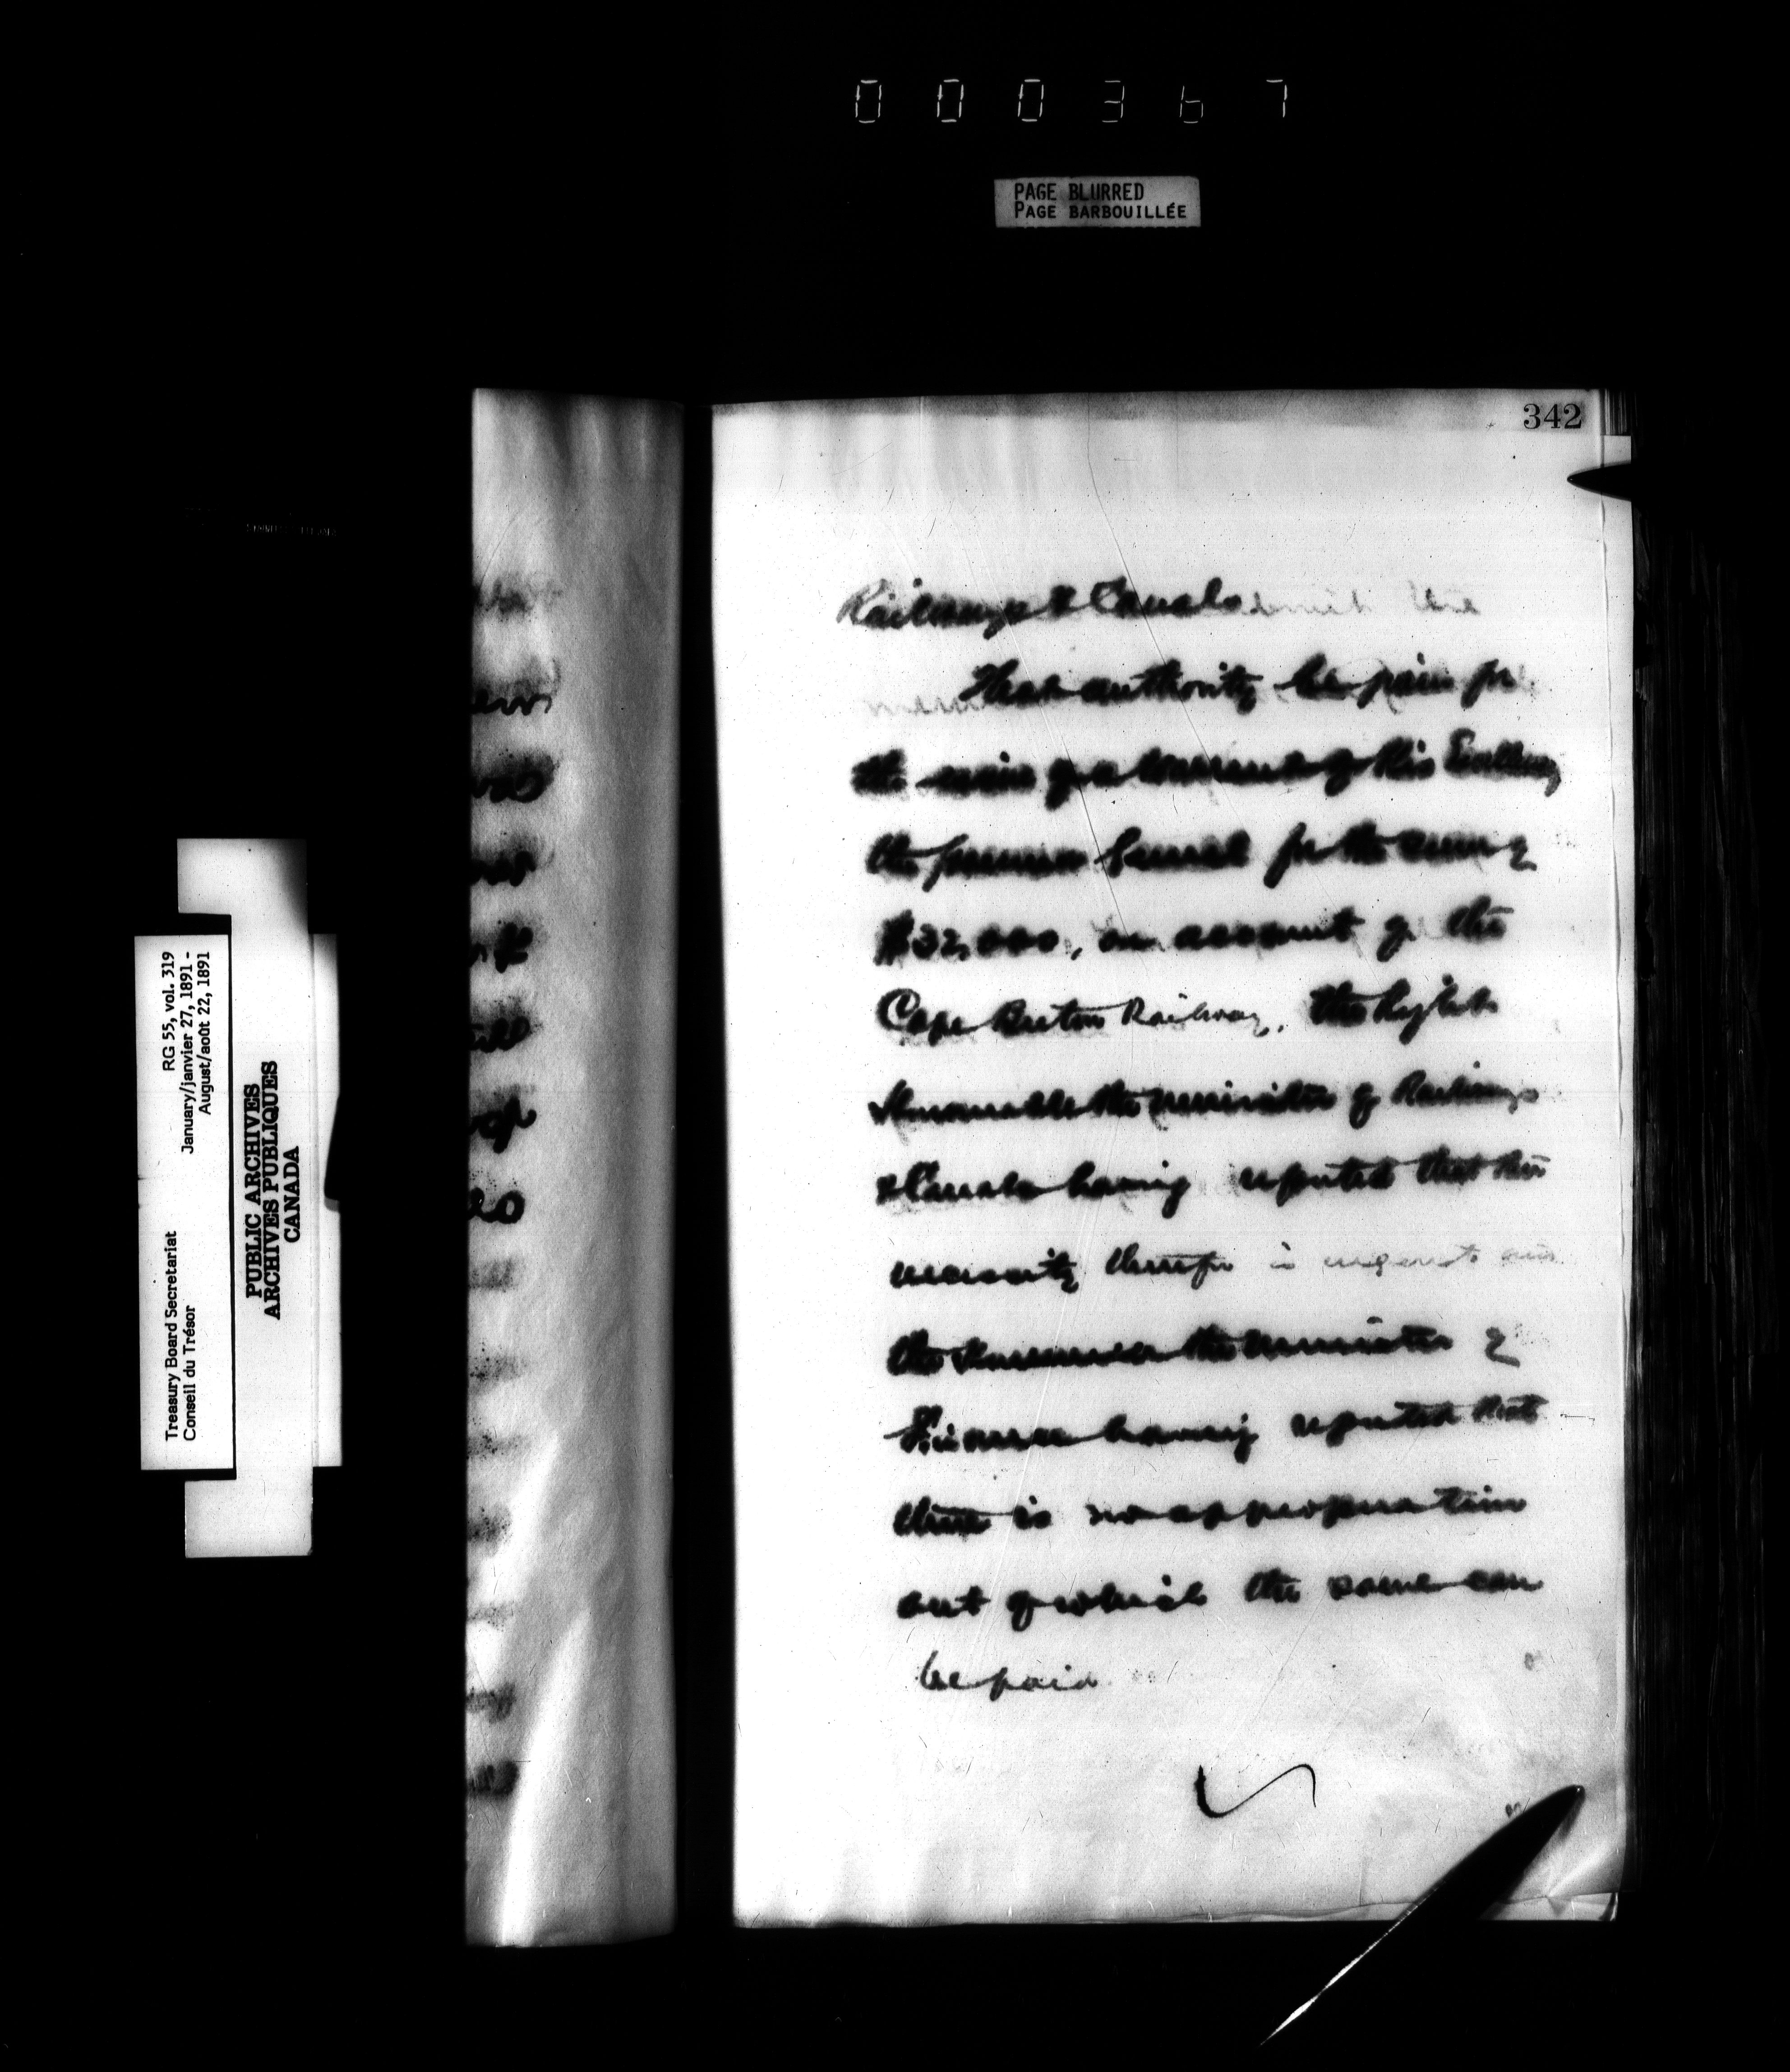 000367
PAGE BLURRED
PAGE BARBOUILLÉE
342
Railways & Canals
That authority be given for
the issue of a Warrant of His Excellency
the Governor General for the sum of
$32,000, on account of the
Cape Breton Railway, the Right
Honourable the Minister of Railways
& Canals having reported that the
necessity therefor is urgent and
the Honourable the Minister of
Finance having reported that
there is no appropriation
out of which the same can
be paid
RG 55, vol. 319
January/janvier 27, 1891 -
August/août 22, 1891
Treasury Board Secretariat
Conseil du Trésor
PUBLIC ARCHIVES
ARCHIVES PUBLIQUES
CANADA